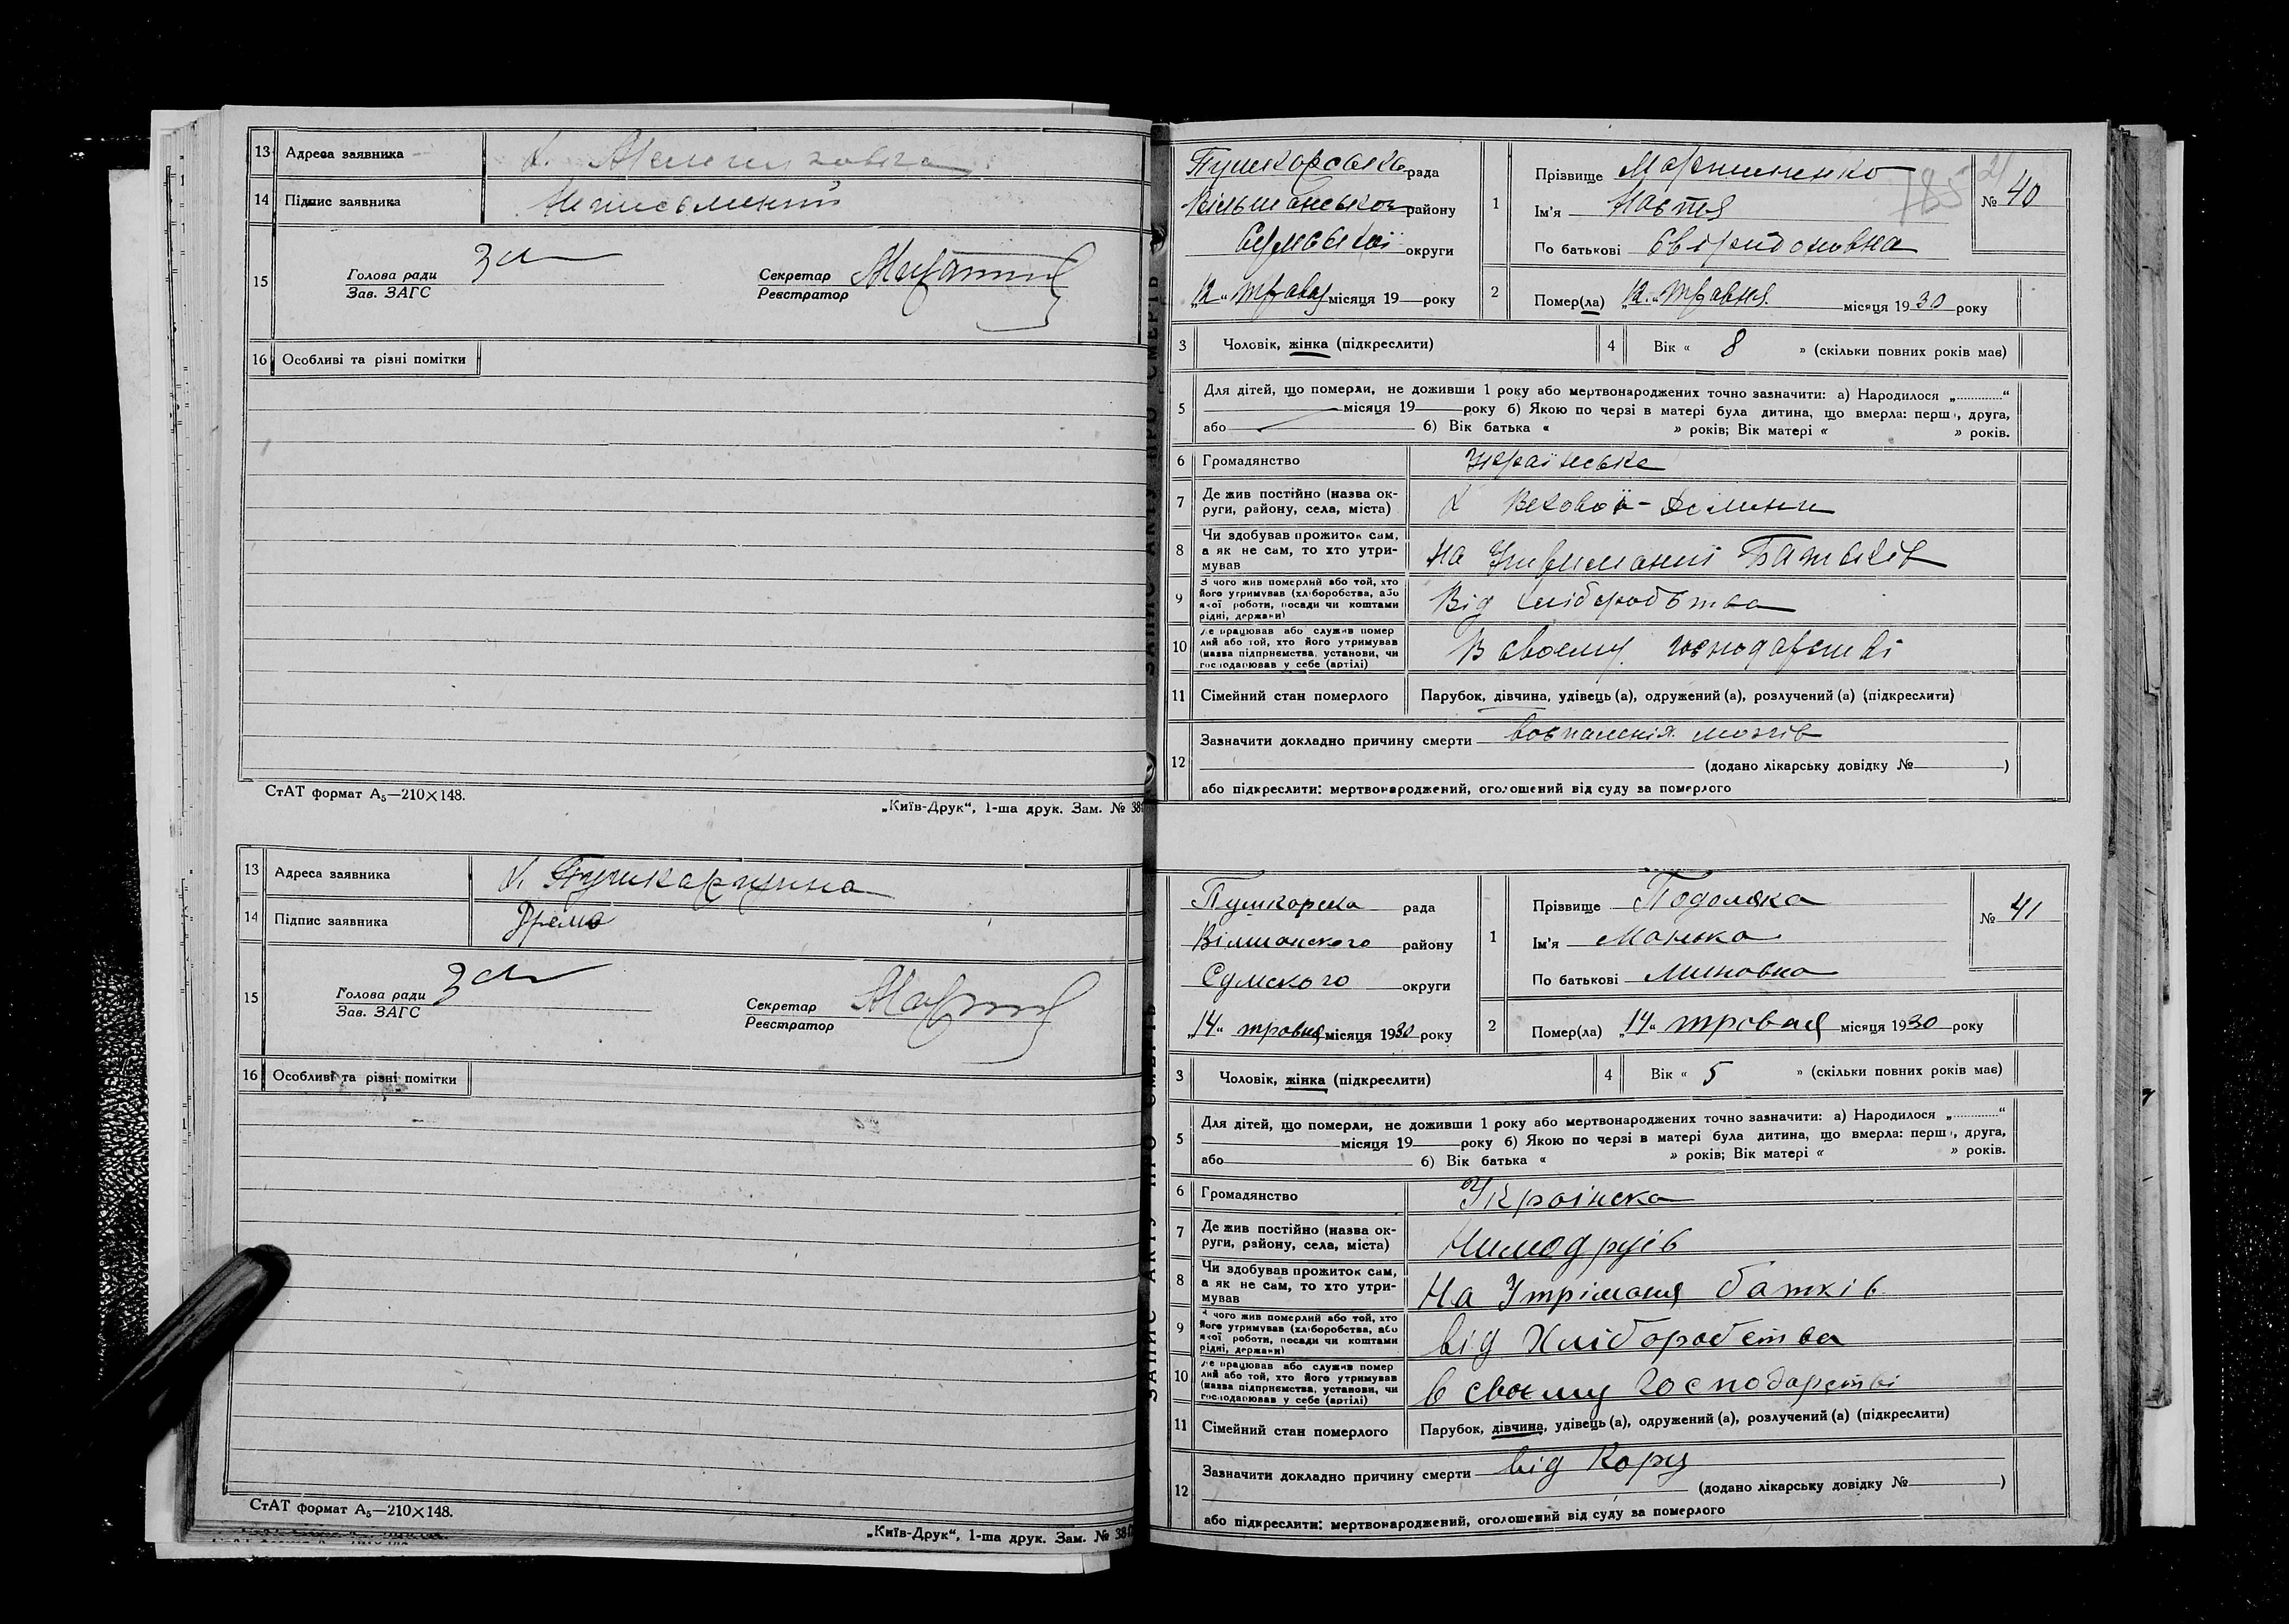 13 Адреса заявника х.
14 Підпис заявника Неписьменний
15 Голова ради Зам
Зав. ЗАГС
Секретар
Реєстратор
16 Особливі та різні помітки
СтАТ формат А₅—210×148.
„Київ-Друк“, 1-ша друк. Зам. № 38
13 Адреса заявника х. Пушкарщина
14 Підпис заявника
15 Голова ради Зам
Зав. ЗАГС
Секретар
Реєстратор
16 Особливі та різні помітки
СтАТ формат А₅—210×148.
„Київ-Друк“, 1-ша друк. Зам. № 38
ЗАПИС АКТУ ПРО СМЕРТЬ
Пушкорська рада
Вільшанської району
Сумської округи
„12“ травня місяця 19 року
1 Прізвище Мартиненко
Ім'я Настя
По батькові Свірідоновна
№ 40
185
2 Помер(ла) „12“ травня місяця 1930 року
3 Чоловік, жінка (підкреслити)
4 Вік « 8 » (скільки повних років має)
5 Для дітей, що померли, не доживши 1 року або мертвонароджених точно зазначити: а) Народилося „............“
місяця 19 року б) Якою по черзі в матері була дитина, що вмерла: перша, друга,
або б) Вік батька « » років; Вік матері « » років.
6 Громадянство Українське
7 Де жив постійно (назва ок-
руги, району, села, міста) х
8 Чи здобував прожиток сам,
а як не сам, то хто утри-
мував на Утриманні Батьків
9 З чого жив померлий або той, хто
його утримував (хліборобства, або
якої роботи, посади чи коштами
рідні, держави) Від хліборобства
10 Де працював або служив помер
лий або той, хто його утримував
(назва підприємства, установи, чи
господарював у себе (артілі) В своєму господарстві
11 Сімейний стан померлого Парубок, дівчина, удівець (а), одружений (а), розлучений (а) (підкреслити)
12 Зазначити докладно причину смерти воспаленія мозгів
(додано лікарську довідку № )
або підкреслити: мертвонароджений, оголошений від суду за померлого
ЗАПИС АКТУ ПРО СМЕРТЬ
Пушкорска рада
Вілшанского району
Сумского округи
„14“ травня місяця 1930 року
1 Прізвище Подоляка
Ім'я Манька
По батькові Миновна
№ 41
2 Помер(ла) „14“ травня місяця 1930 року
3 Чоловік, жінка (підкреслити)
4 Вік « 5 » (скільки повних років має)
5 Для дітей, що померли, не доживши 1 року або мертвонароджених точно зазначити: а) Народилося „............“
місяця 19 року б) Якою по черзі в матері була дитина, що вмерла: перша, друга,
або б) Вік батька « » років; Вік матері « » років.
6 Громадянство Українска
7 Де жив постійно (назва ок-
руги, району, села, міста)
8 Чи здобував прожиток сам,
а як не сам, то хто утри-
мував На Утріманя батків
9 З чого жив померлий або той, хто
його утримував (хліборобства, або
якої роботи, посади чи коштами
рідні, держави) від Хліборобства
10 Де працював або служив помер
лий або той, хто його утримував
(назва підприємства, установи, чи
господарював у себе (артілі) в своєму господарстві
11 Сімейний стан померлого Парубок, дівчина, удівець (а), одружений (а), розлучений (а) (підкреслити)
12 Зазначити докладно причину смерти від Кору
(додано лікарську довідку № )
або підкреслити: мертвонароджений, оголошений від суду за померлого